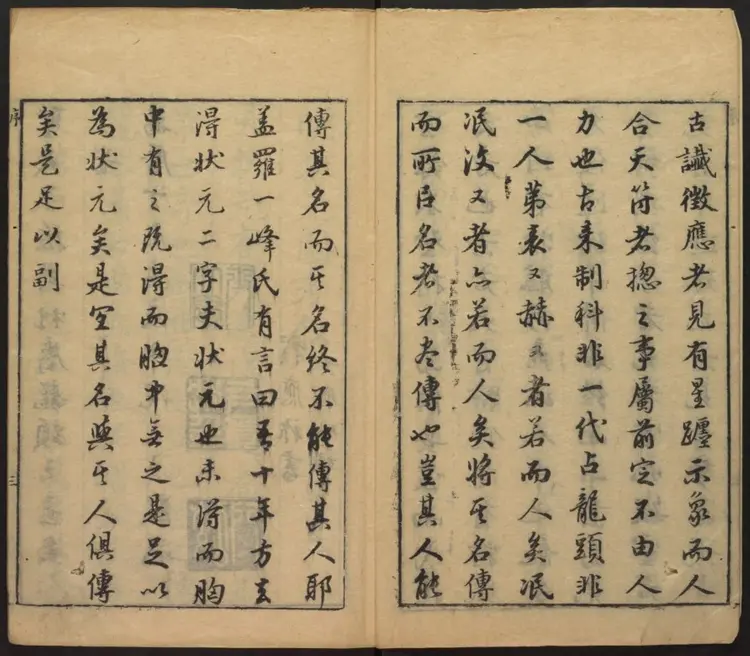 古讖徵應者見有星躔示象而人
合天符者揔之事屬前定不由人
力也古来制科非一代占龍頭非
一人第表〻赫〻者若而人矣泯
泯没〻者亦若而人矣将其名傳
而所㠯名者不尽傳也豈其人能
傳其名而其名終不能傳其人耶
盖羅一峰氏有言曰吾十年方去
淂状元二字夫状元也未淂而胸
中有之既淂而胸中無之是足以
為状元矣是宜其名與其人俱傳
矣是足以副
序
三